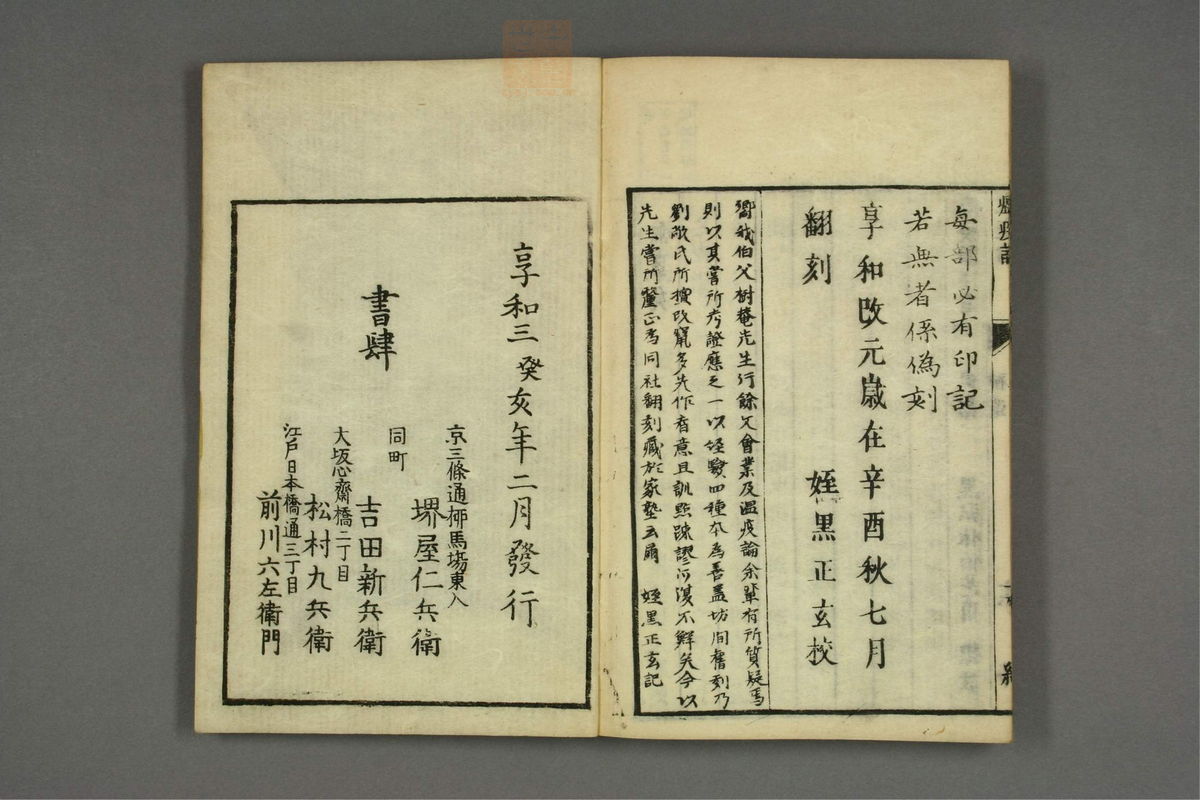 每部必有印記
若無者係偽刻
享和改元歳在辛酉秋七月
翻刻 姪黒正玄校
嚮我伯父樹菴先生行餘文會業及温疫論余輩有所質疑焉
則以其嘗所考證應之一以姪駿四種本為善蓋坊間舊刻乃
劉敞氏所攅改竄多失作者意且訓點踈謬亦復不鮮矣今以
先生嘗所釐正為同社翻刻藏於家塾云爾 姪黒正玄記
享和三癸亥年二月發行
書肆
京三條通栁馬塲東入
堺屋仁兵衛
同町
吉田新兵衛
大坂心齋橋二丁目
松村九兵衛
江戸日本橋通三丁目
前川六左衛門